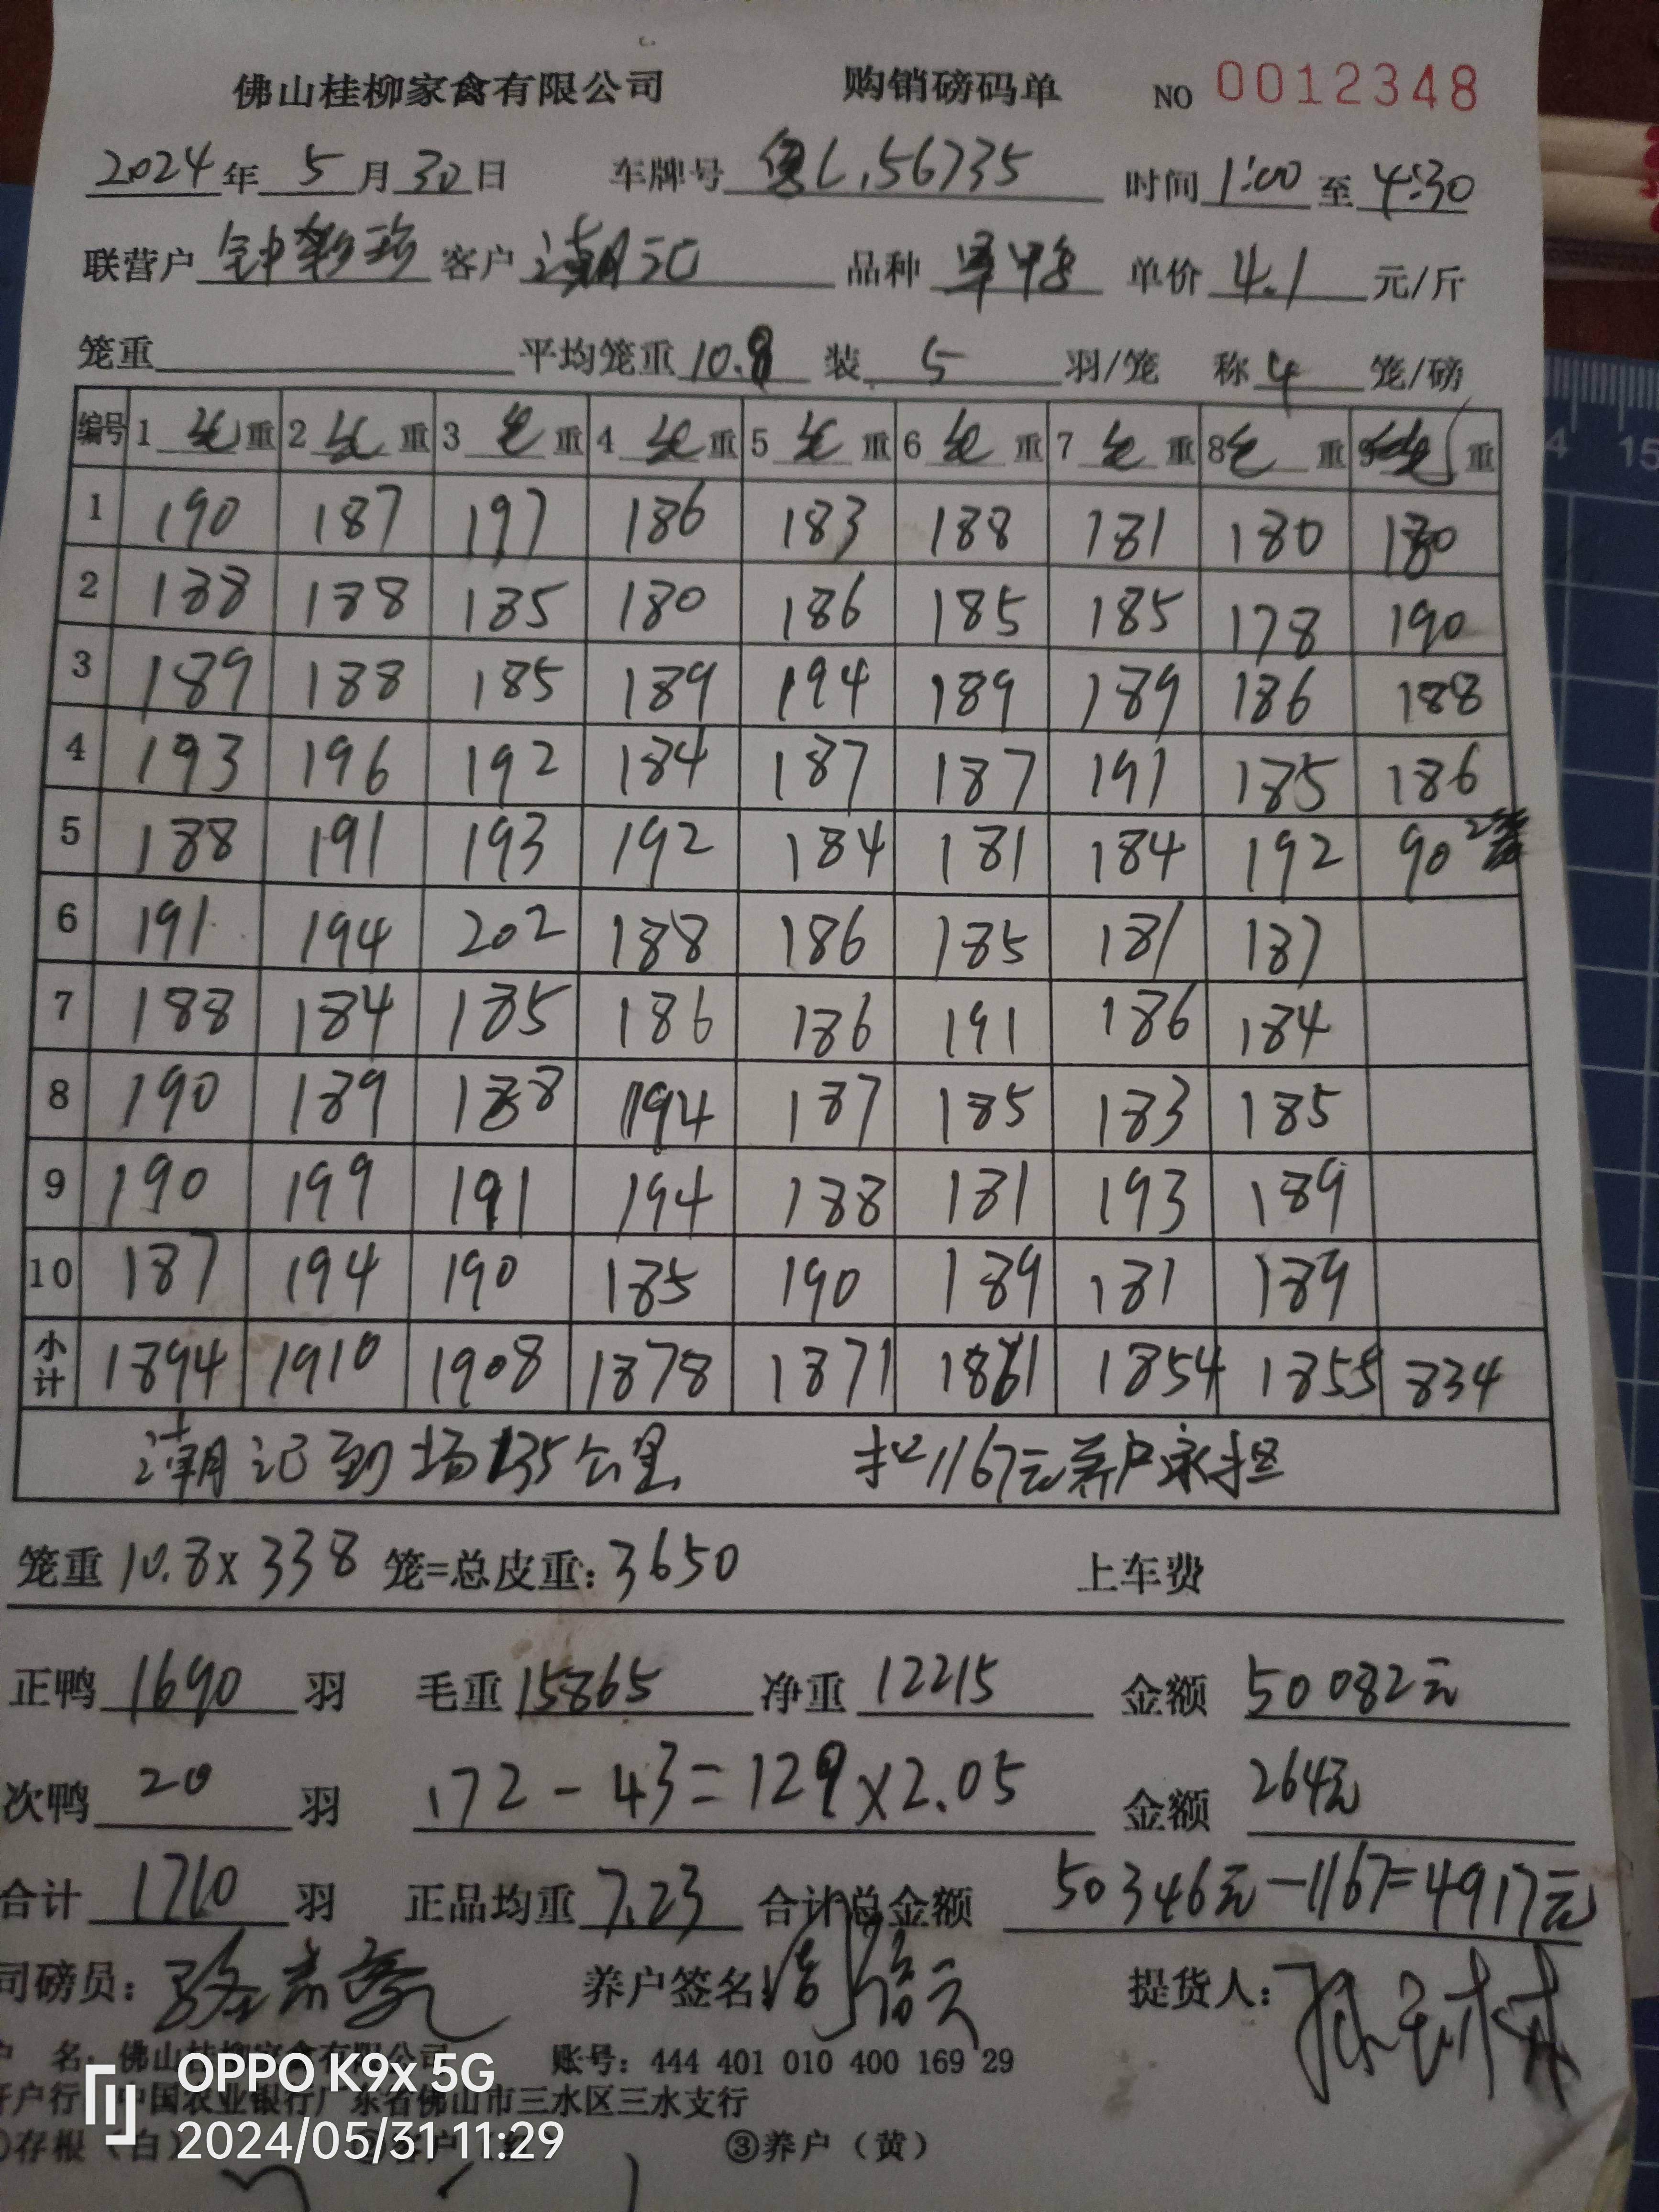 佛山桂柳家禽有限公司 购销磅码单 NO 0012348
2024年 5月 30日 车牌号 粤L.56735 时间 1:00 至 4:30
联营户 钟彩珍 客户 潮记 品种 单价 4.1 元/斤
笼重 平均笼重 10.8 装 5 羽/笼 称 4 笼/磅
编号 1 毛重 2 毛重 3 毛重 4 毛重 5 毛重 6 毛重 7 毛重 8 毛重 9 毛重
1 190 187 197 186 183 188 181 180 180
2 188 188 185 180 186 185 185 178 190
3 189 188 185 189 194 189 189 186 188
4 193 196 192 184 187 187 191 185 186
5 188 191 193 192 184 181 184 192 90 2笼
6 191 194 202 188 186 185 181 187
7 188 184 185 186 186 191 186 184
8 190 189 188 194 187 185 183 185
9 190 199 191 194 188 181 193 189
10 187 194 190 185 190 189 181 189
小计 1894 1910 1908 1878 1871 1861 1854 1855 834
潮记到场135公里 扣1167元养户承担
笼重 10.8 x 338 笼=总皮重: 3650 上车费
正鸭 1690 羽 毛重 15865 净重 12215 金额 50082元
次鸭 20 羽 172 - 43 = 129 x 2.05 金额 264元
合计 1710 羽 正品均重 7.23 合计总金额 50346元-1167=4917元
司磅员: 养户签名 提货人:
户 名: 佛山桂柳家禽有限公司 账号: 444 401 010 400 169 29
开户行 中国农业银行广东省佛山市三水区三水支行
存根(白) ③养户(黄)
OPPO K9x 5G
2024/05/31 11:29